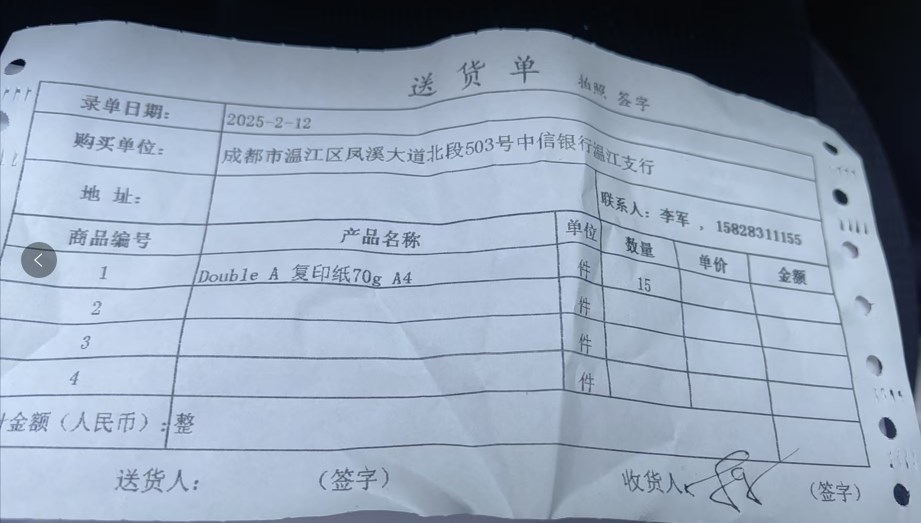 送货单 拍照 签字
录单日期: 2025-2-12
购买单位: 成都市温江区凤溪大道北段503号中信银行温江支行
地 址: 联系人: 李军 , 15828311155
商品编号 产品名称 单位 数量 单价 金额
1 Double A 复印纸70g A4 件 15
2 件
3 件
4 件
金额(人民币): 整
送货人: (签字) 收货人 (签字)